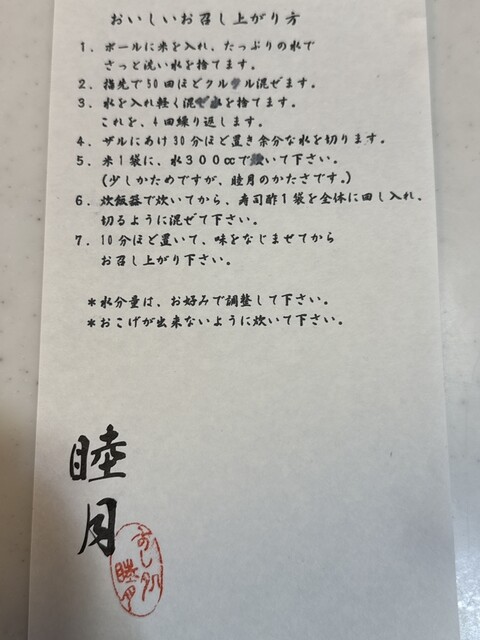 おいしいお召し上がり方
1. ボールに米を入れ、たっぷりの水で
さっと洗い水を捨てます。
2. 指先で50回ほどクルクル混ぜます。
3. 水を入れ軽く混ぜ水を捨てます。
これを、4回繰り返します。
4. ザルにあけ30分ほど置き余分な水を切ります。
5. 米1袋に、水300ccで炊いて下さい。
(少しかためですが、睦月のかたさです。)
6. 炊飯器で炊いてから、寿司酢1袋を全体に回し入れ、
切るように混ぜて下さい。
7. 10分ほど置いて、味をなじませてから
お召し上がり下さい。
*水分量は、お好みで調整して下さい。
*おこげが出来ないように炊いて下さい。
睦月
すし処
睦月